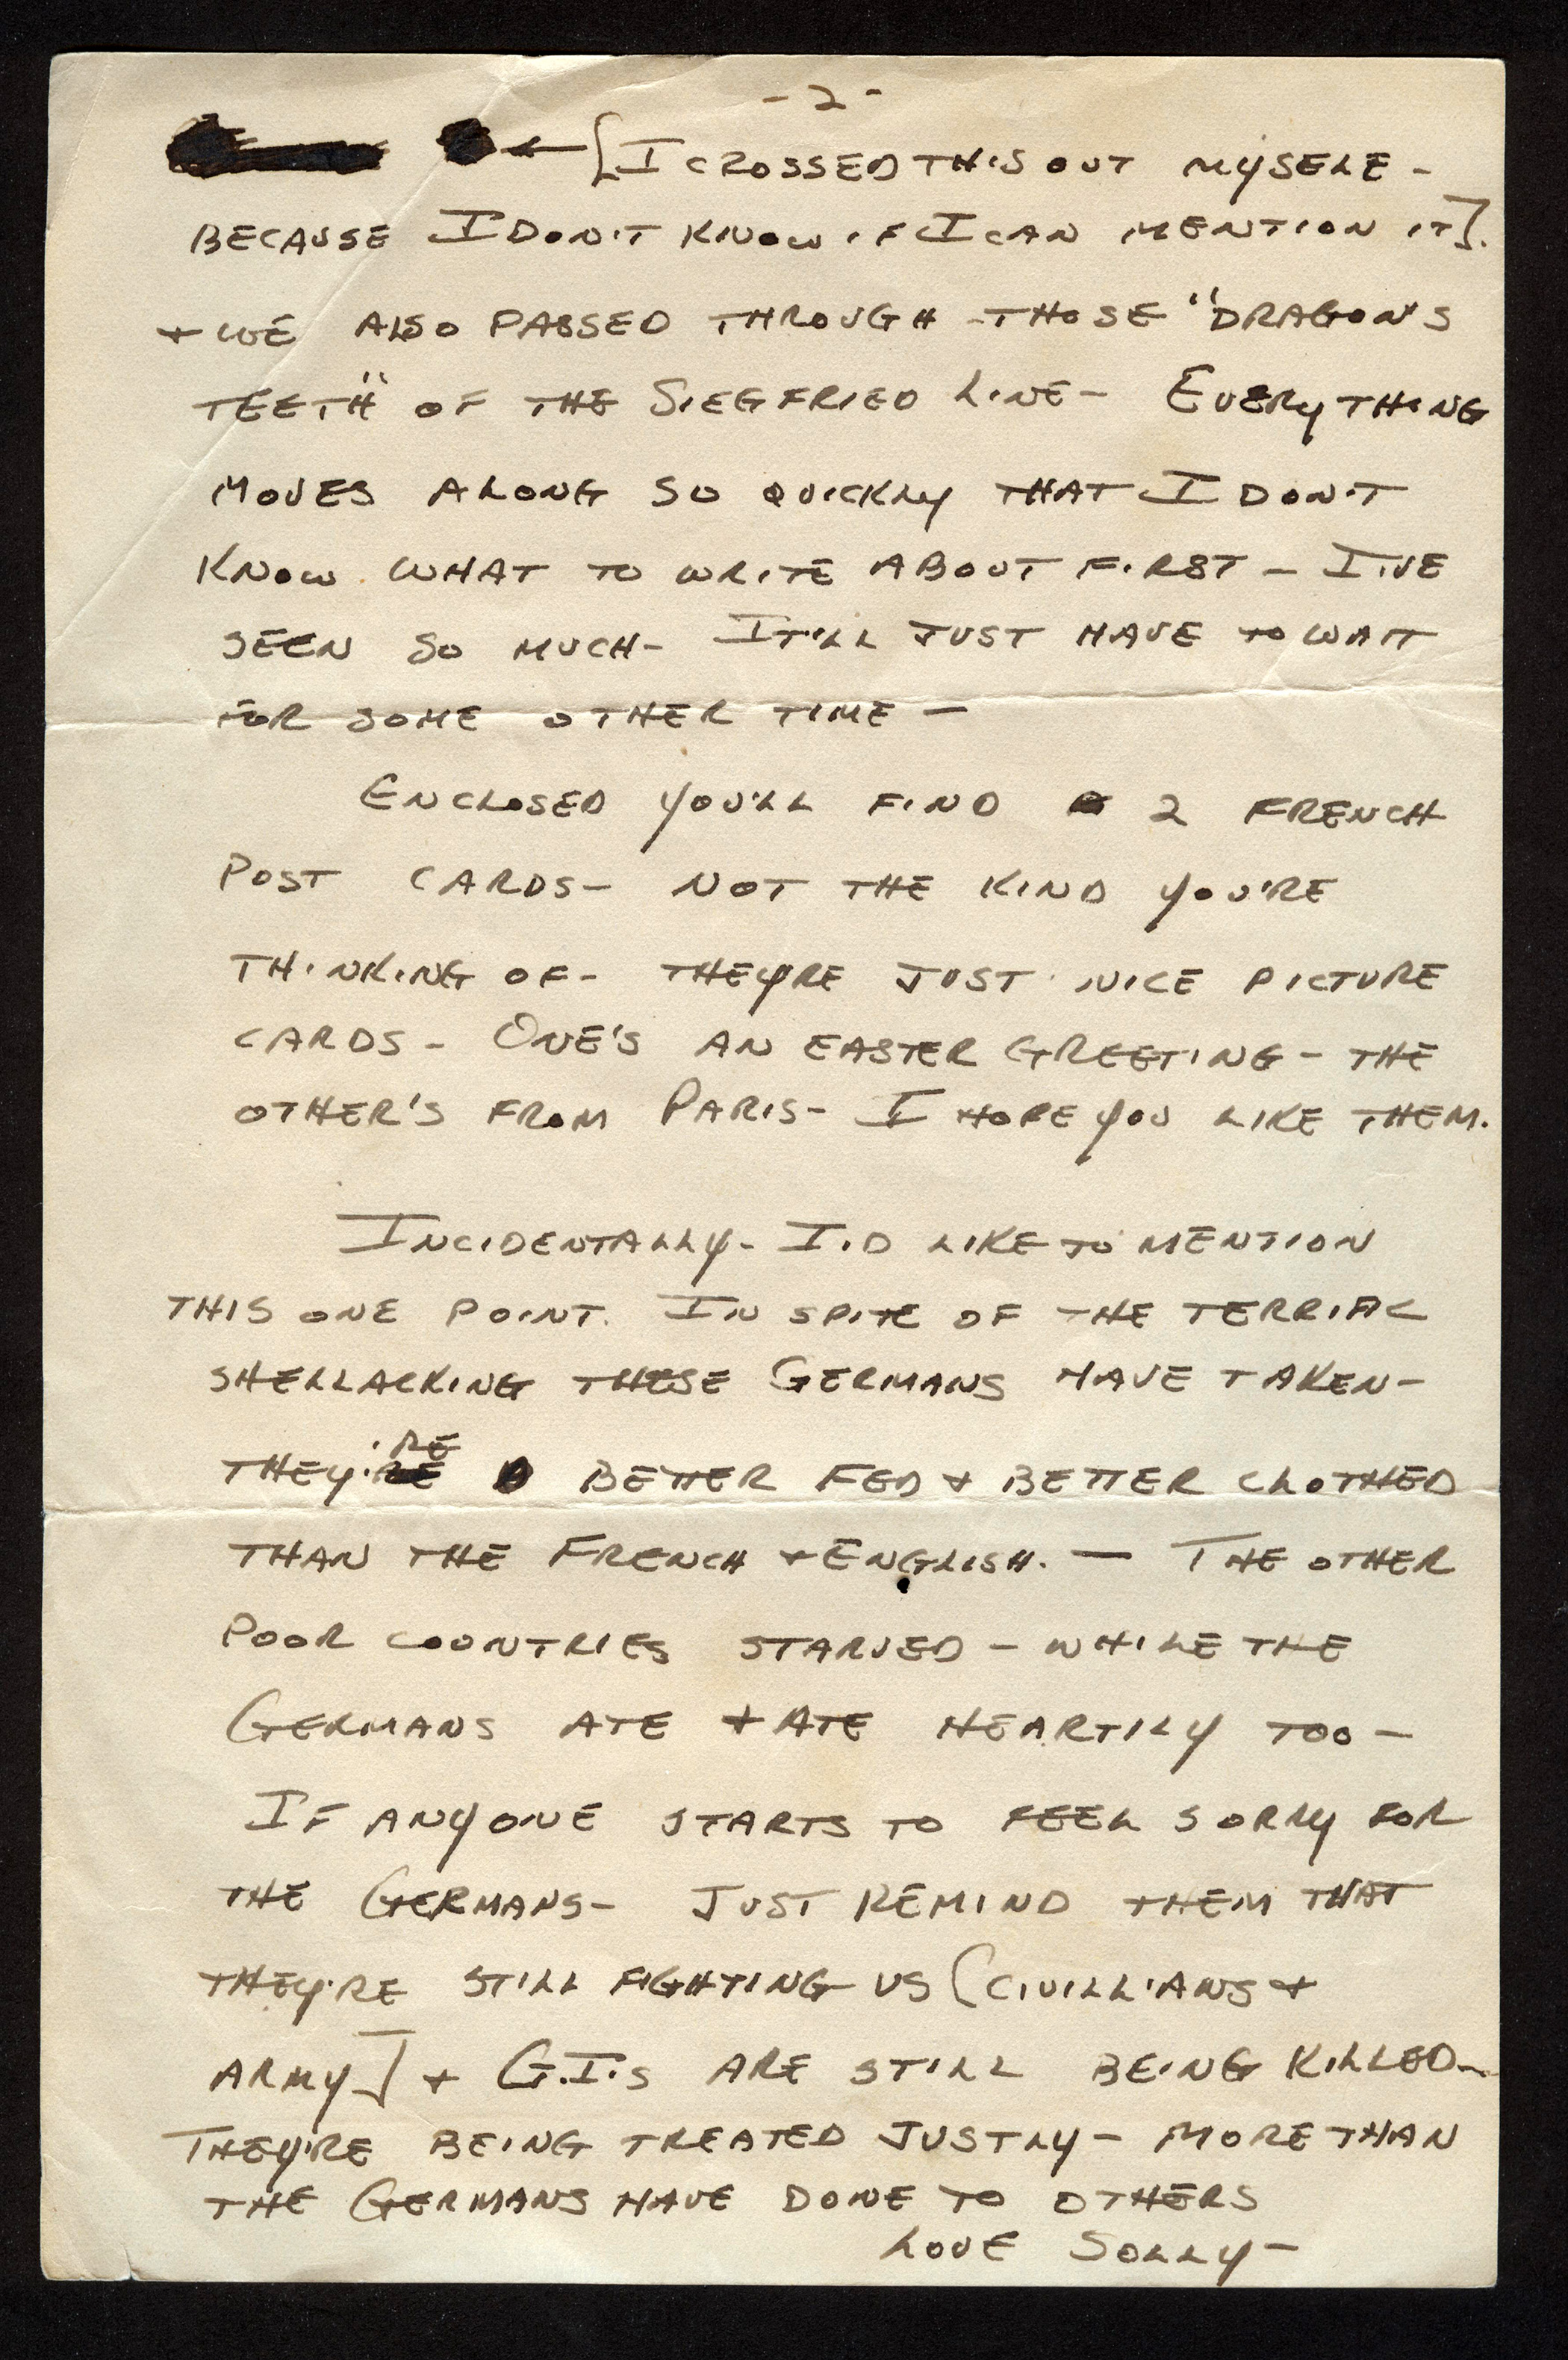 - 2 -
← [I CROSSED THIS OUT MYSELF -
BECAUSE I DON'T KNOW IF I CAN MENTION IT].
+ WE ALSO PASSED THROUGH THOSE "DRAGON'S
TEETH" OF THE SIEGFRIED LINE - EVERYTHING
MOVES ALONG SO QUICKLY THAT I DON'T
KNOW WHAT TO WRITE ABOUT FIRST - I'VE
SEEN SO MUCH - IT'LL JUST HAVE TO WAIT
FOR SOME OTHER TIME -
ENCLOSED YOU'LL FIND 2 FRENCH
POST CARDS - NOT THE KIND YOU'RE
THINKING OF - THEY'RE JUST NICE PICTURE
CARDS - ONE'S AN EASTER GREETING - THE
OTHER'S FROM PARIS - I HOPE YOU LIKE THEM.
INCIDENTALLY - I'D LIKE TO MENTION
THIS ONE POINT. IN SPITE OF THE TERRIFIC
SHELLACKING THESE GERMANS HAVE TAKEN -
THEY'RE BETTER FED + BETTER CLOTHED
THAN THE FRENCH + ENGLISH. - THE OTHER
POOR COUNTRIES STARVED - WHILE THE
GERMANS ATE + ATE HEARTILY TOO -
IF ANYONE STARTS TO FEEL SORRY FOR
THE GERMANS - JUST REMIND THEM THAT
THEY'RE STILL FIGHTING US [CIVILLIANS +
ARMY] + G.I.'s ARE STILL BEING KILLED -
THEY'RE BEING TREATED JUSTLY - MORE THAN
THE GERMANS HAVE DONE TO OTHERS
LOVE SOLLY -